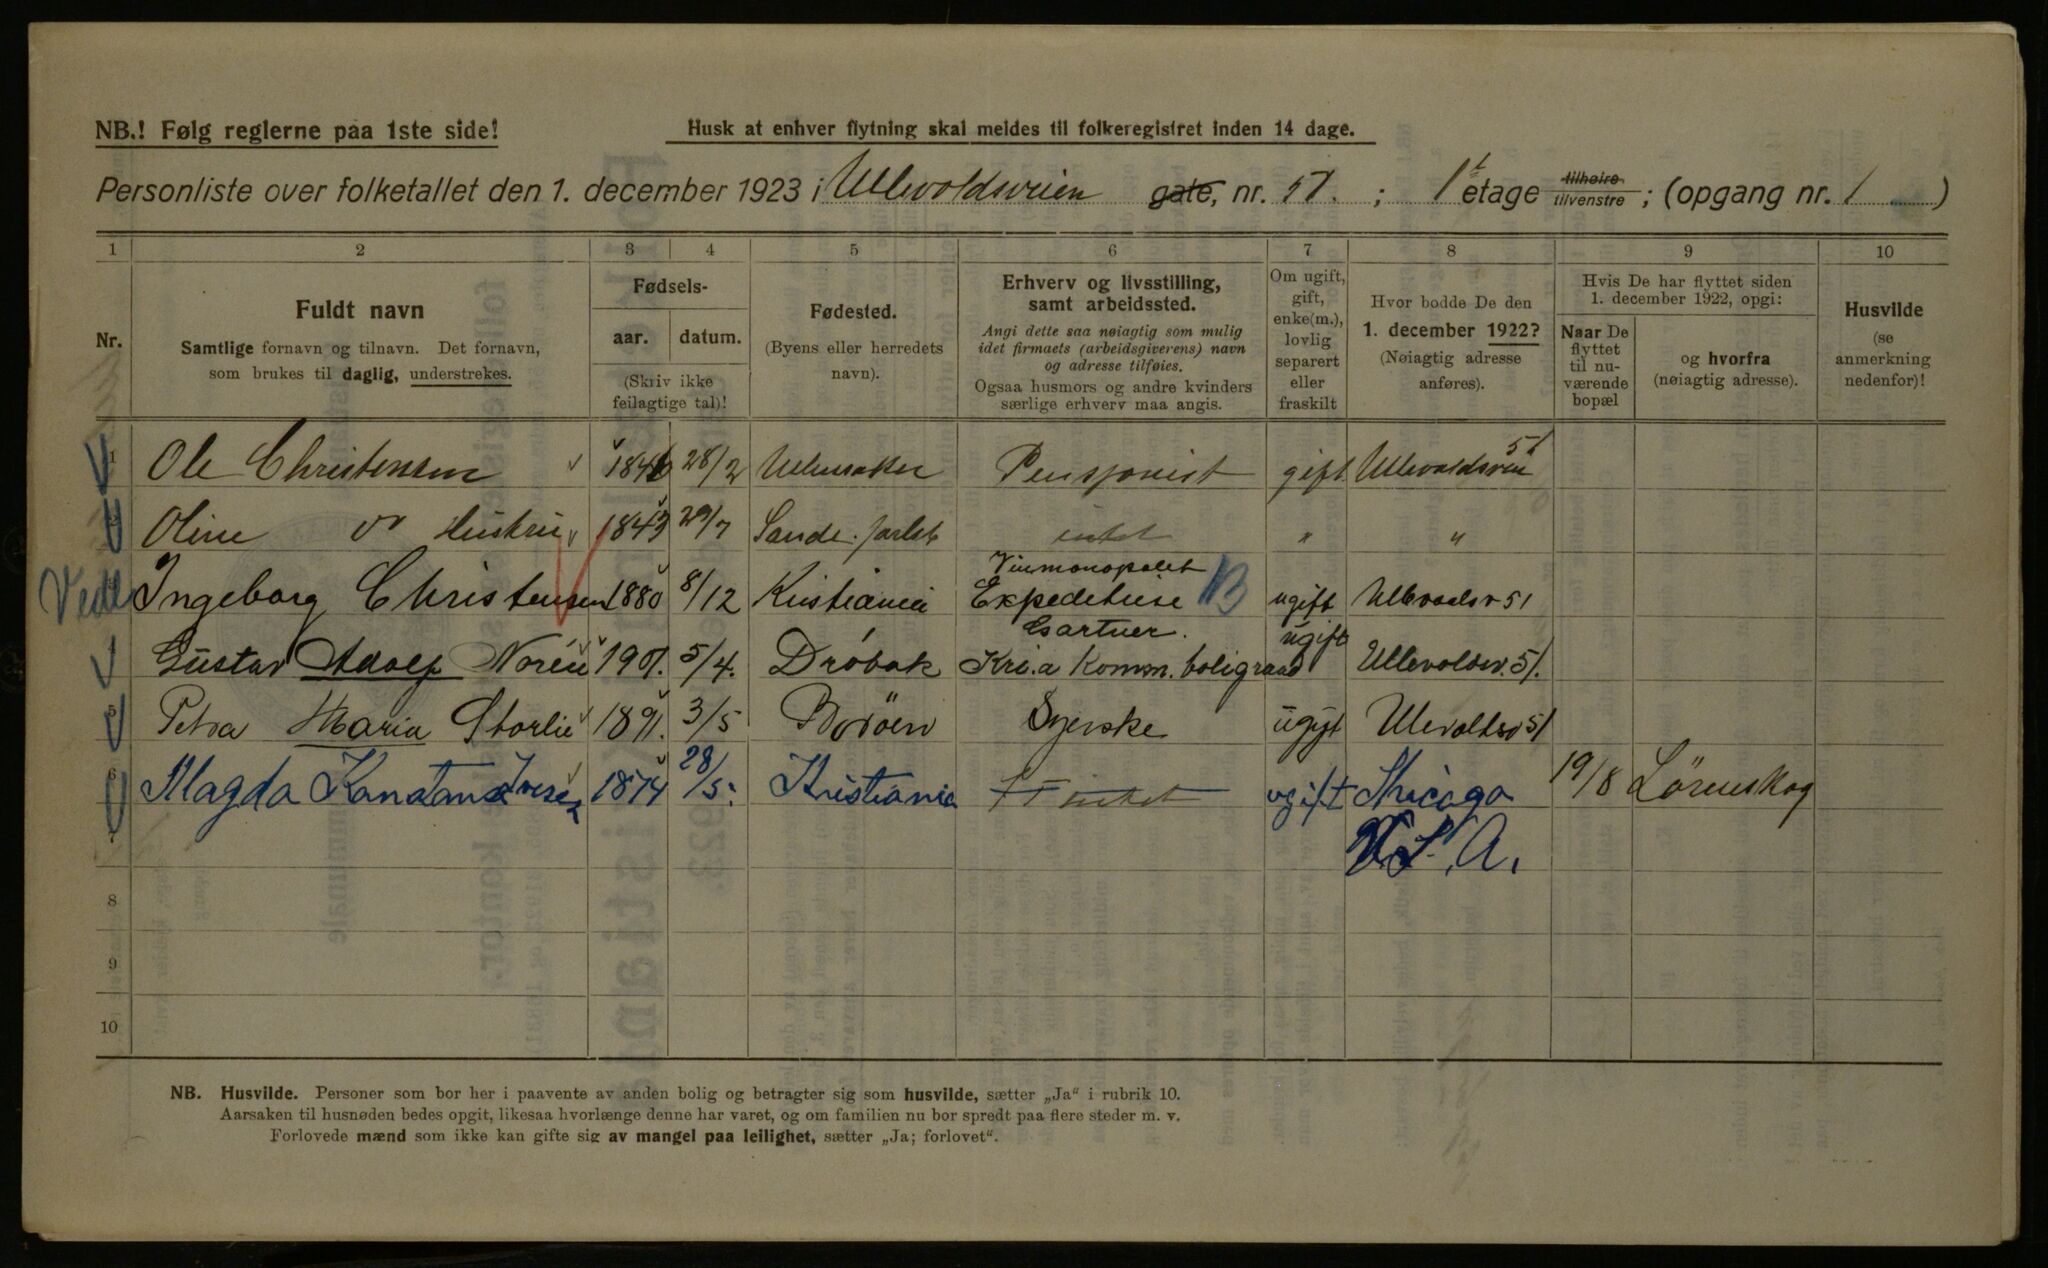 NB.! Følg reglerne paa 1ste side!
Husk at enhver flytning skal meldes til folkeregistret inden 14 dage.
Personliste over folketallet den 1. december 1923 i Ullevoldsveien gate, nr. 51. ; 1 etage tilhøire tilvenstre ; (opgang nr. 1 )
1 2 3 4 5 6 7 8 9 10
Nr.
Fuldt navn
Samtlige fornavn og tilnavn. Det fornavn,
som brukes til daglig, understrekes.
Fødsels-
aar. datum.
(Skriv ikke
feilagtige tal)!
Fødested.
(Byens eller herredets
navn).
Erhverv og livsstilling,
samt arbeidssted.
Angi dette saa nøiagtig som mulig
idet firmaets (arbeidsgiverens) navn
og adresse tilføies.
Ogsaa husmors og andre kvinders
særlige erhverv maa angis.
Om ugift,
gift,
enke(m.),
lovlig
separert
eller
fraskilt
Hvor bodde De den
1. december 1922?
(Nøiagtig adresse
anføres).
Hvis De har flyttet siden
1. december 1922, opgi:
Naar De
flyttet
til nu-
værende
bopæl
og hvorfra
(nøiagtig adresse).
Husvilde
(se
anmerkning
nedenfor)!
1 Ole Christensen 28/2 Ullensaker Pensjonist gift Ullevoldsvein 51
2 Oline Hustru 1843 29/7 Sande Jarlsb intet " "
Vinmonopolet
3 Ingeborg Christensen 1880 8/12 Kristiania Expeditrise B ugift Ullevaalsv 51
Gartner.
Gustav Adolf Norén 1901. 5/4. Drøbak Kri.a Komm. boligraad ugift Ullevoldsv. 51.
5 Petra Maria Storlie 1891. 3/5 Syerske ugift Ulevoldsv 51
6 Magda 1874 28/5. Kristiania intet ugift Shicago 19/8 Lörenskog
7 U.S.A.
8
9
10
NB. Husvilde. Personer som bor her i paavente av anden bolig og betragter sig som husvilde, sætter „Ja“ i rubrik 10.
Aarsaken til husnøden bedes opgit, likesaa hvorlænge denne har varet, og om familien nu bor spredt paa flere steder m. v.
Forlovede mænd som ikke kan gifte sig av mangel paa leilighet, sætter „Ja; forlovet“.